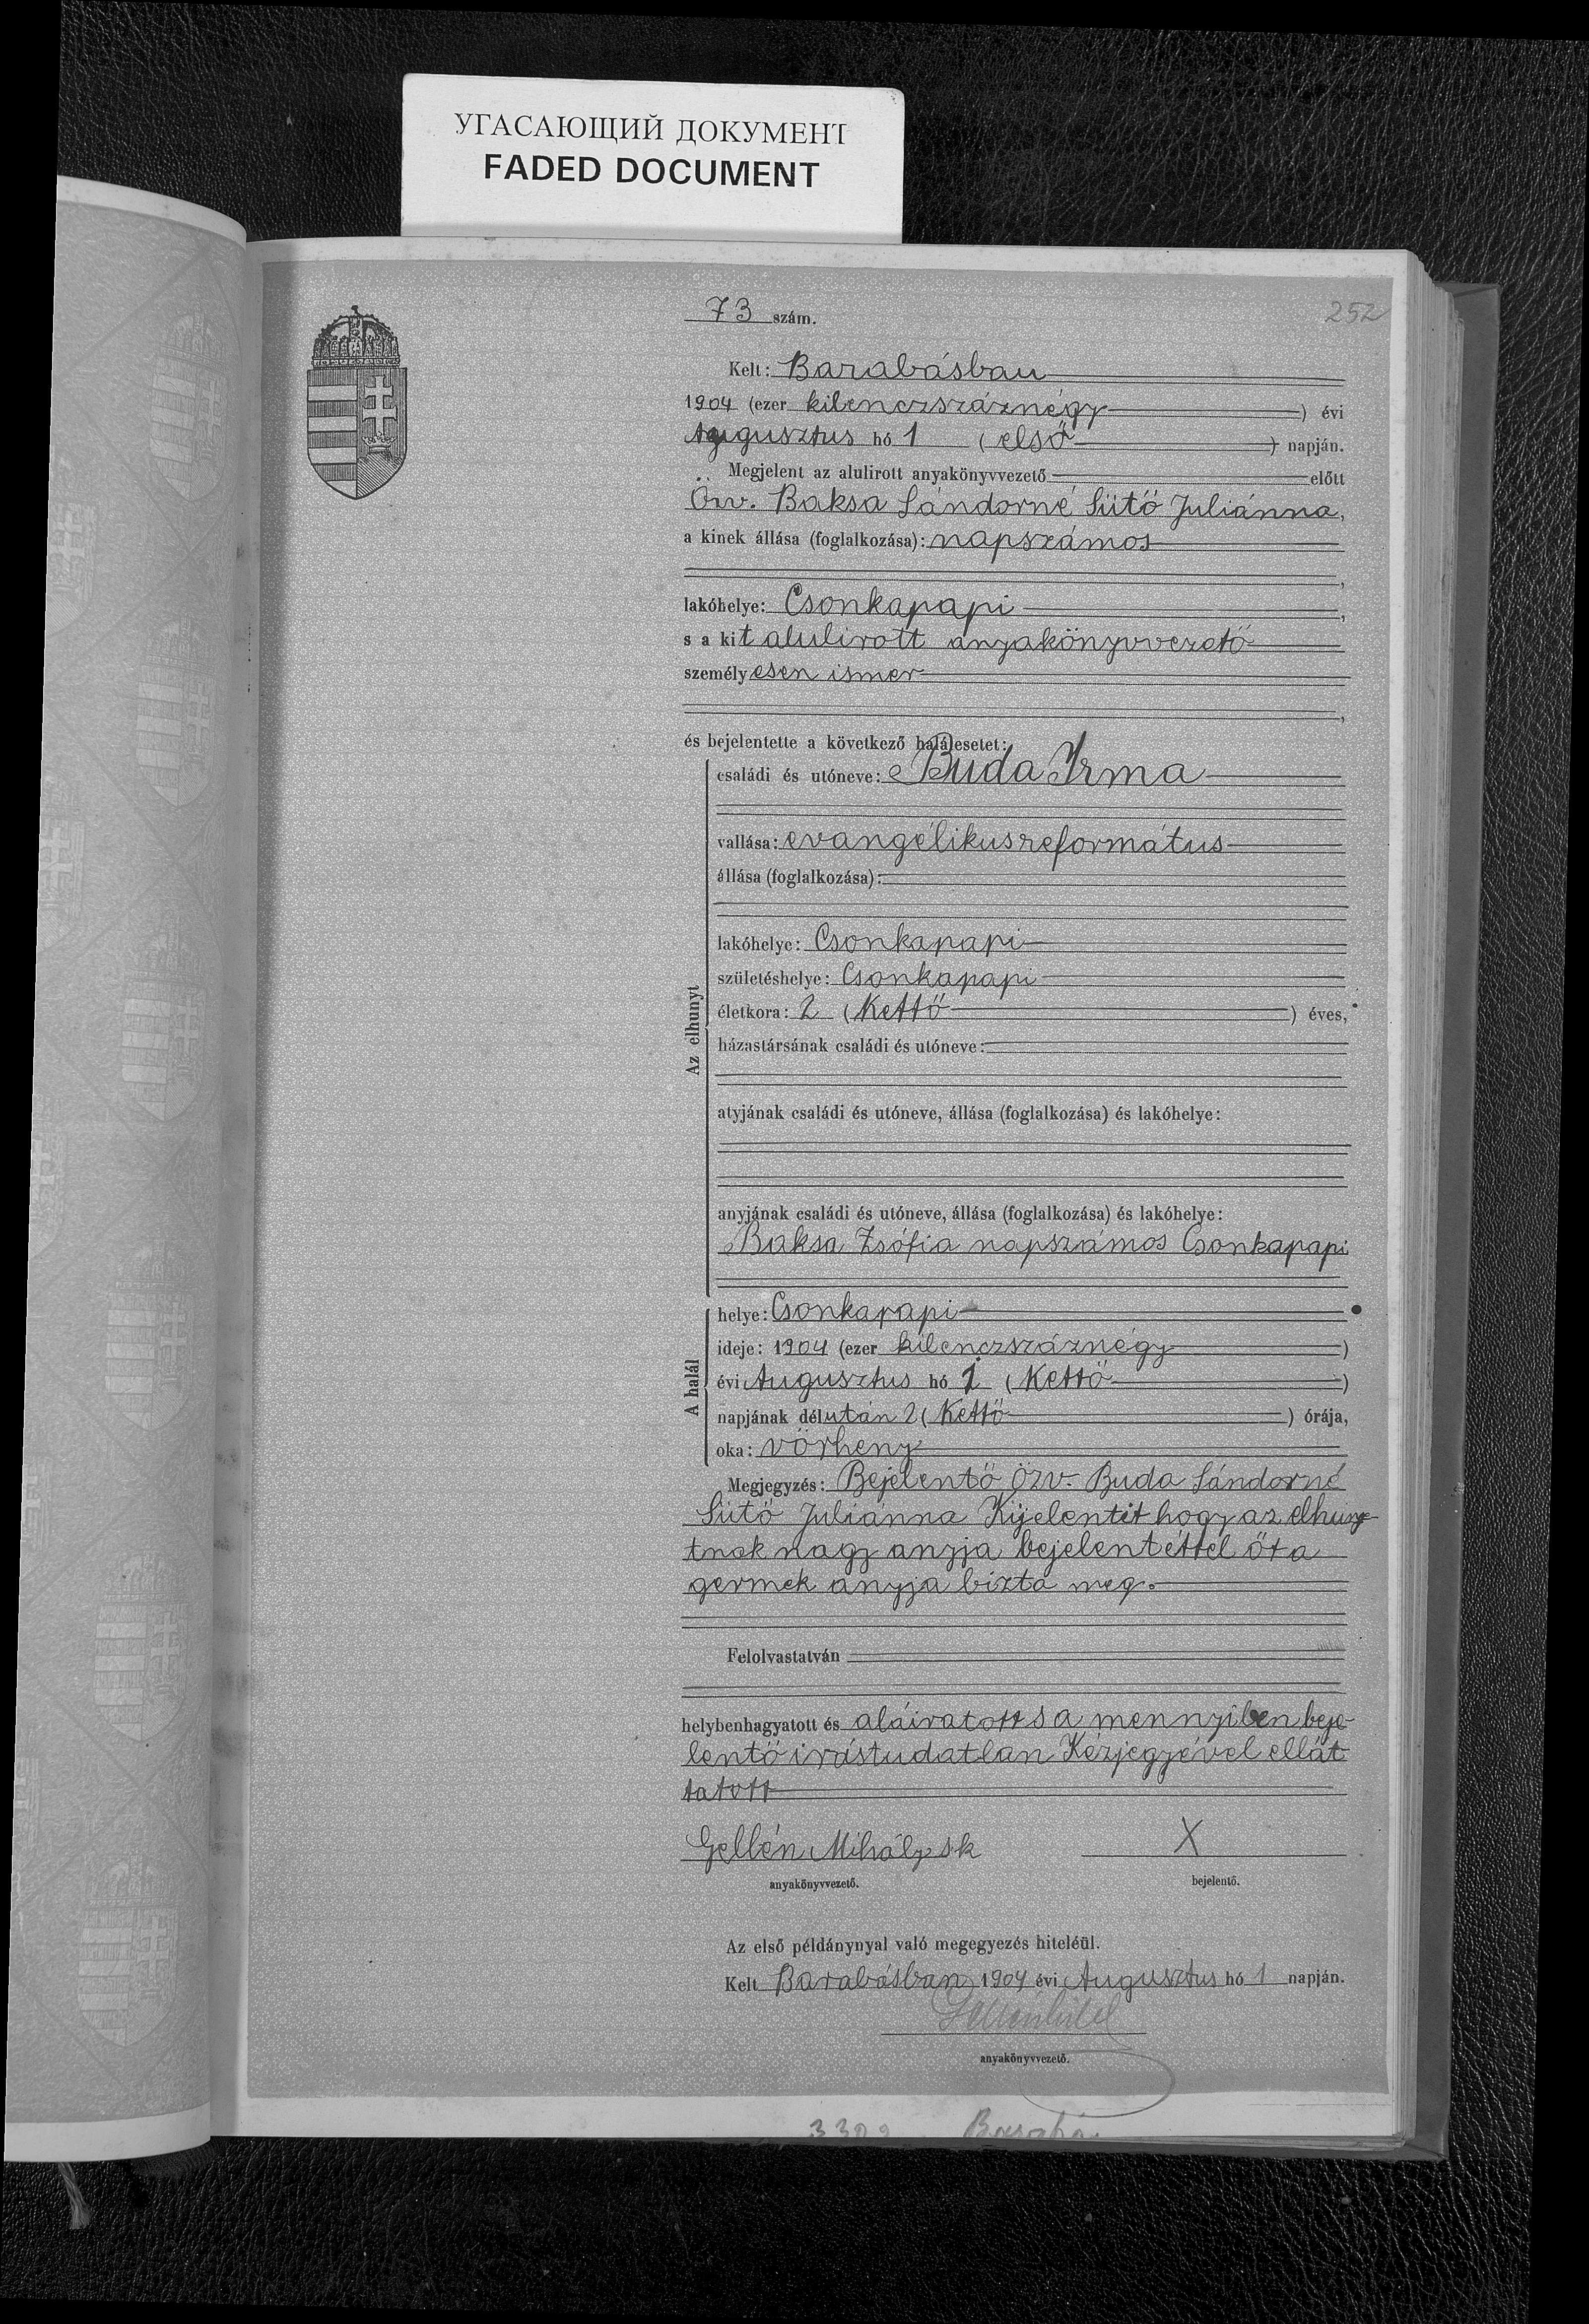 УГАСАЮЩИЙ ДОКУМЕНТ
FADED DOCUMENT
252
73 szám.
Kelt: Barabásban
1904 (ezer kilenczszáznégy) évi
Augusztus hó 1 (első) napján.
Megjelent az alulirott anyakönyvvezető előtt
Özv. Baksa Sándorné Sütő Juliánna,
a kinek állása (foglalkozása): napszámos
,
lakóhelye: Csonkapapi,
s a kit alulirott anyakönyvvezető
személyesen ismer
,
és bejelentette a következő halálesetet:
Az elhunyt
családi és utóneve: Buda Irma
vallása: evangélikusreformátus
állása (foglalkozása):
lakóhelye: Csonkapapi
születéshelye: Csonkapapi
életkora: 2 (Kettő) éves,
házastársának családi és utóneve:
atyjának családi és utóneve, állása (foglalkozása) és lakóhelye:
anyjának családi és utóneve, állása (foglalkozása) és lakóhelye:
Baksa Zsófia napszámos Csonkapapi
A halál
helye: Csonkapapi
ideje: 1904 (ezer kilenczszáznégy)
évi Augusztus hó 1 (Kettő)
napjának délután 2 (Kettő) órája,
oka: vörheny
Megjegyzés: Bejelentő özv. Buda Sándorné
Sütő Juliánna Kijelentit hogy az elhuny-
tnak nagy anyja bejelentéttel őt a
germek anyja bizta meg.
Felolvastatván
helybenhagyatott és aláiratott s a mennyiben beje-
lentő irástudatlan Kézjegyével ellát
tatott
Gellén Mihály sk X
anyakönyvvezető. bejelentő.
Az első példánynyal való megegyezés hiteléül.
Kelt Barabásban 1904 évi Augusztus hó 1 napján.
anyakönyvvezető.